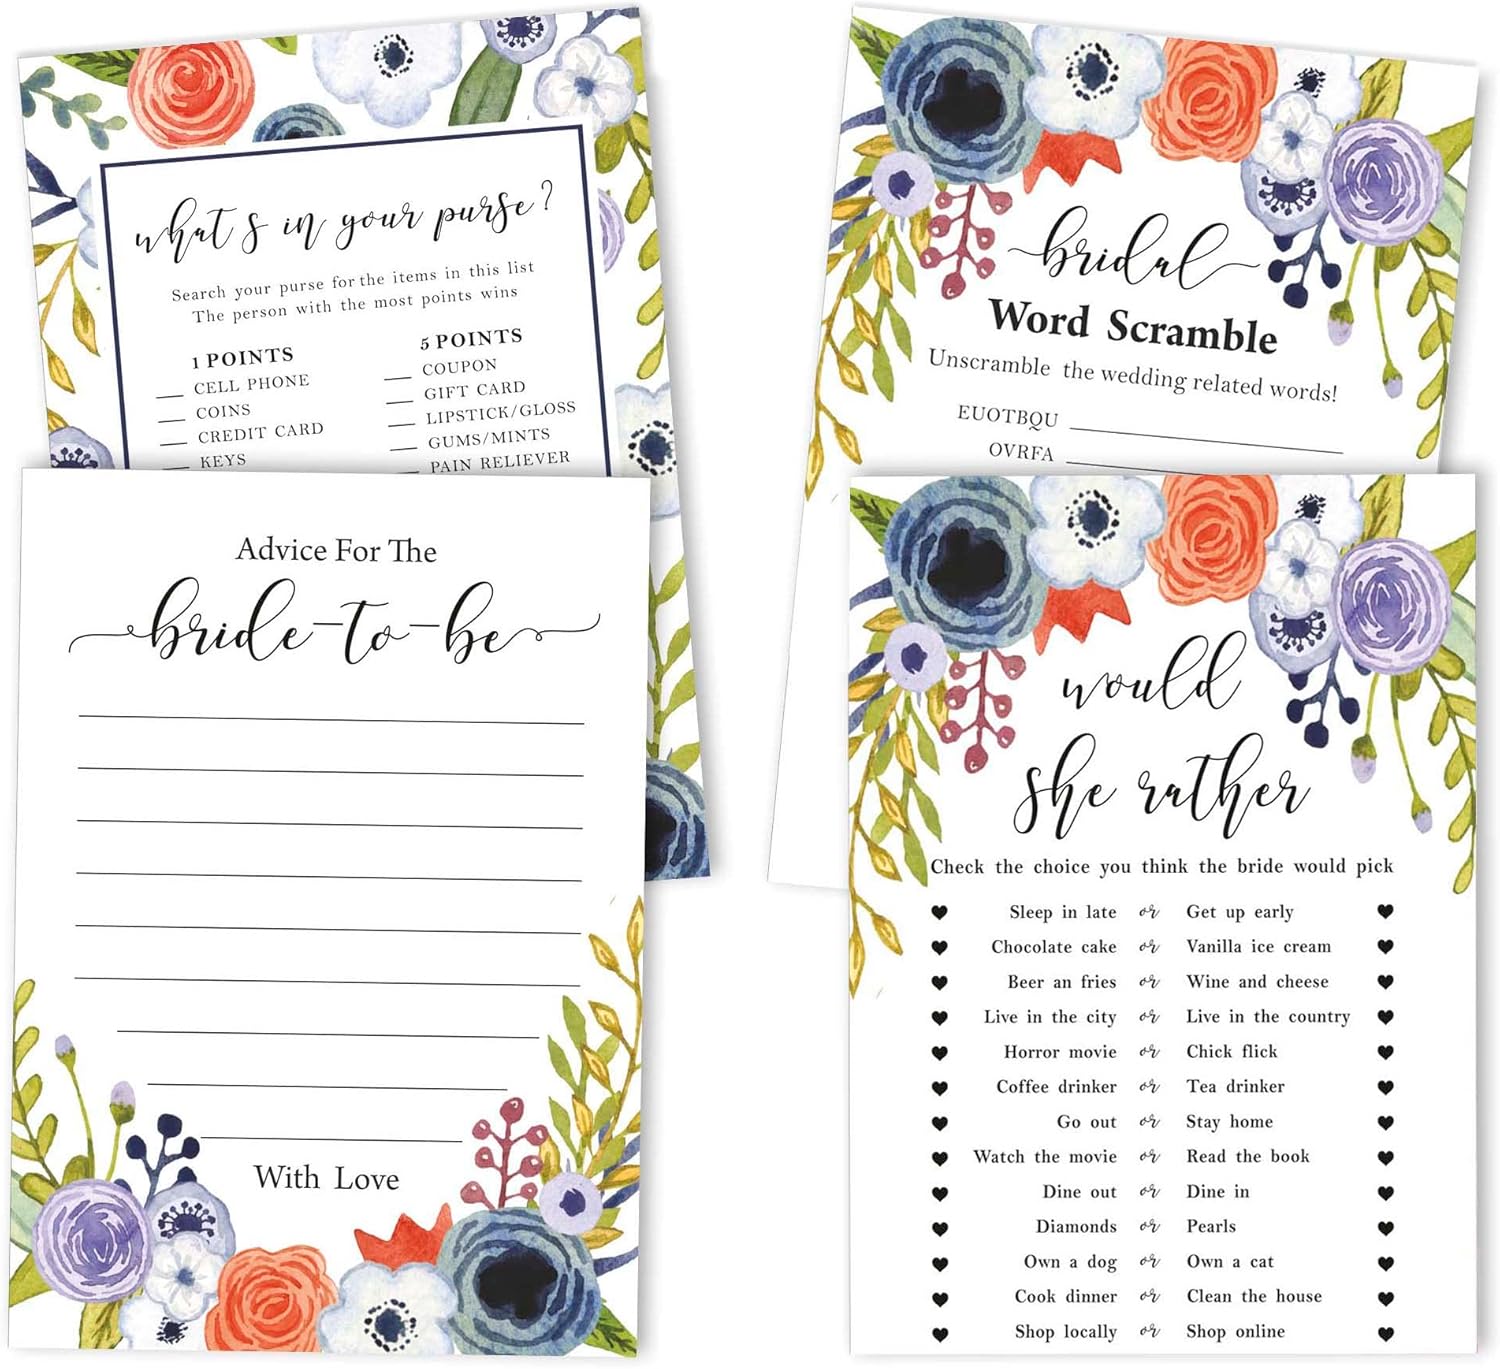 what's in your purse?
Search your purse for the items in this list
The person with the most points wins
1 POINTS
CELL PHONE
COINS
CREDIT CARD
KEYS
5 POINTS
COUPON
GIFT CARD
LIPSTICK/GLOSS
GUMS/MINTS
PAIN RELIEVER
bridal
Word Scramble
Unscramble the wedding related words!
EUOTBQU
OVRFA
Advice For The
bride-to-be
With Love
would
she rather
Check the choice you think the bride would pick
Sleep in late or Get up early
Chocolate cake or Vanilla ice cream
Beer an fries or Wine and cheese
Live in the city or Live in the country
Horror movie or Chick flick
Coffee drinker or Tea drinker
Go out or Stay home
Watch the movie or Read the book
Dine out or Dine in
Diamonds or Pearls
Own a dog or Own a cat
Cook dinner or Clean the house
Shop locally or Shop online